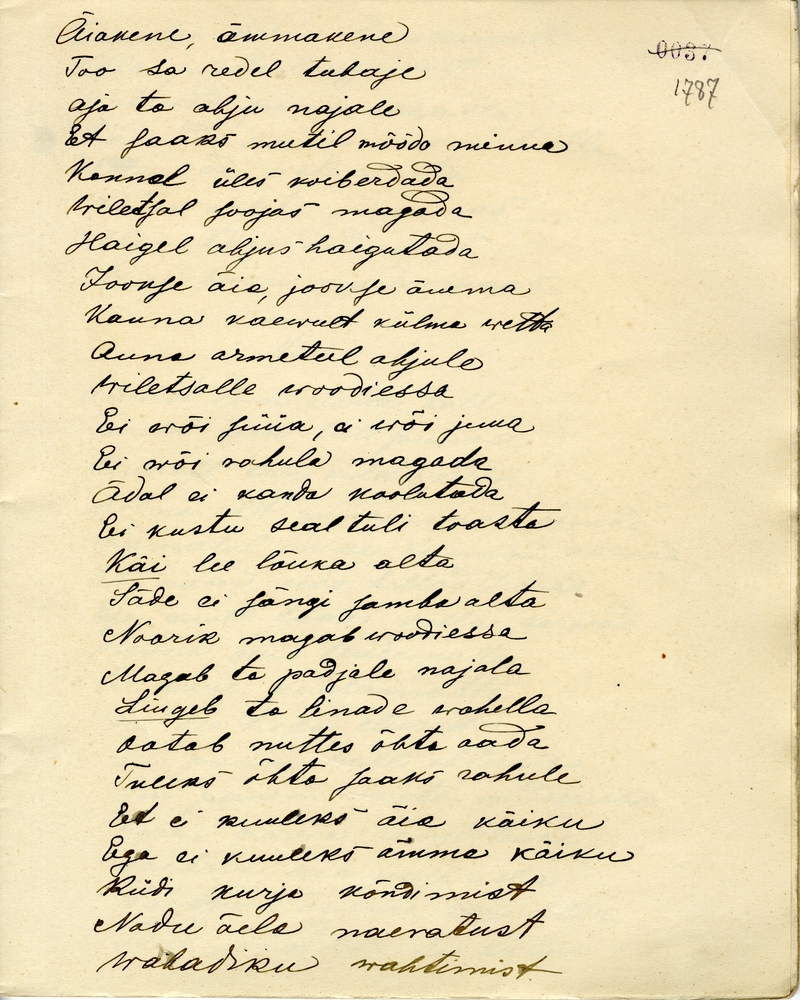 Äiakene, ämmakene
0037
Too sa redel tubaje
1787
aja ta ahju najale
Et saaks mutil mööda minna
Konnal üles koiberdada
Wiletsal soojas magada
Haigel ahjus haigutada
Jookse äia, jookse ämma
Kanna kaewult külma wetta
Anna armetul ahjule
Wiletsalle woodiessa
Ei wõi süüa, ei wõi juua
Ei wõi rahula magada
Ädal ei kanda koolutada
Ei kustu seal tuli toasta
Käi lee lõuka alta
Säde ei sängi samba alta
Noorik magab woodiessa
Magab ta padjale najala
Lingeb ta linade wahella
Ootab nuttes õhta aada
Tuleks õhta saaks rahule
Et ei kuuleks äia käiku
Ega ei kuuleks ämma käiku
Küdi kurja kõndimist
Nadu õela naeratust
Wabadiku wahtimist